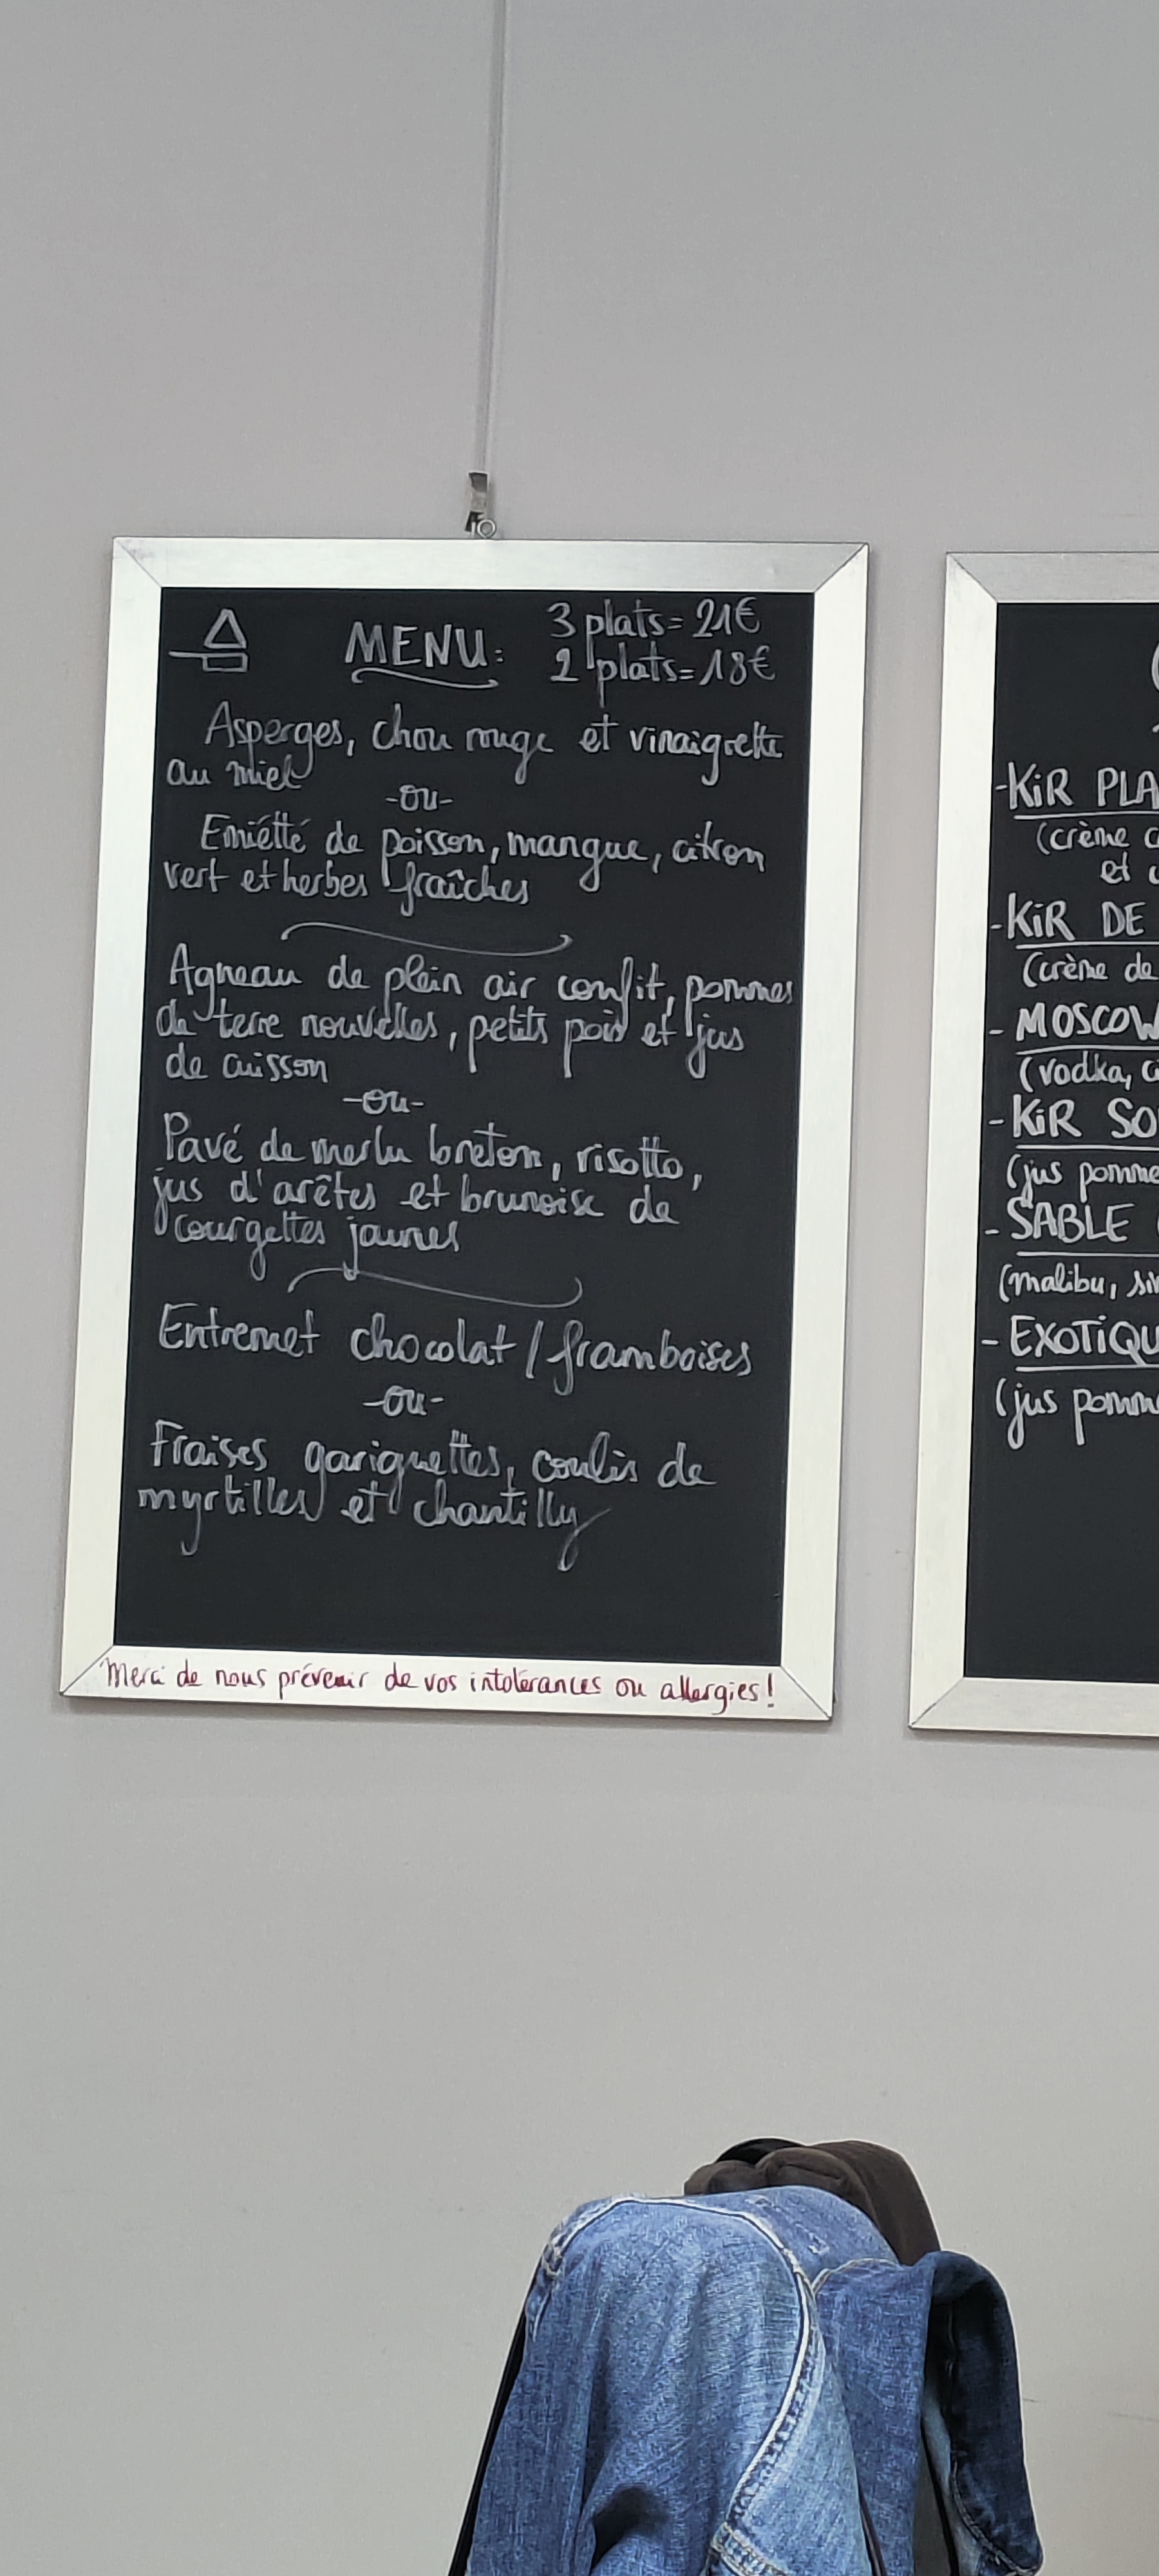 MENU: 3 plats = 21€
2 plats = 18€
Asperges, chou rouge et vinaigrette
au miel
-ou-
Emiétté de poisson, mangue, citron
vert et herbes fraîches
Agneau de plein air confit, pommes
de terre nouvelles, petits pois et jus
de cuisson
-ou-
Pavé de merlu breton, risotto,
jus d'arêtes et brunoise de
courgettes jaunes
Entremet chocolat / framboises
-ou-
Fraises gariguettes, coulis de
myrtilles et chantilly
Merci de nous prévenir de vos intolérances ou allergies !
- KiR PLA
(crème c
et
- KiR DE
(crème de
- MOSCOW
(vodka, ci
- KiR SO
(jus pomme
- SABLE
(malibu, sir
- EXOTiQU
(jus pomme